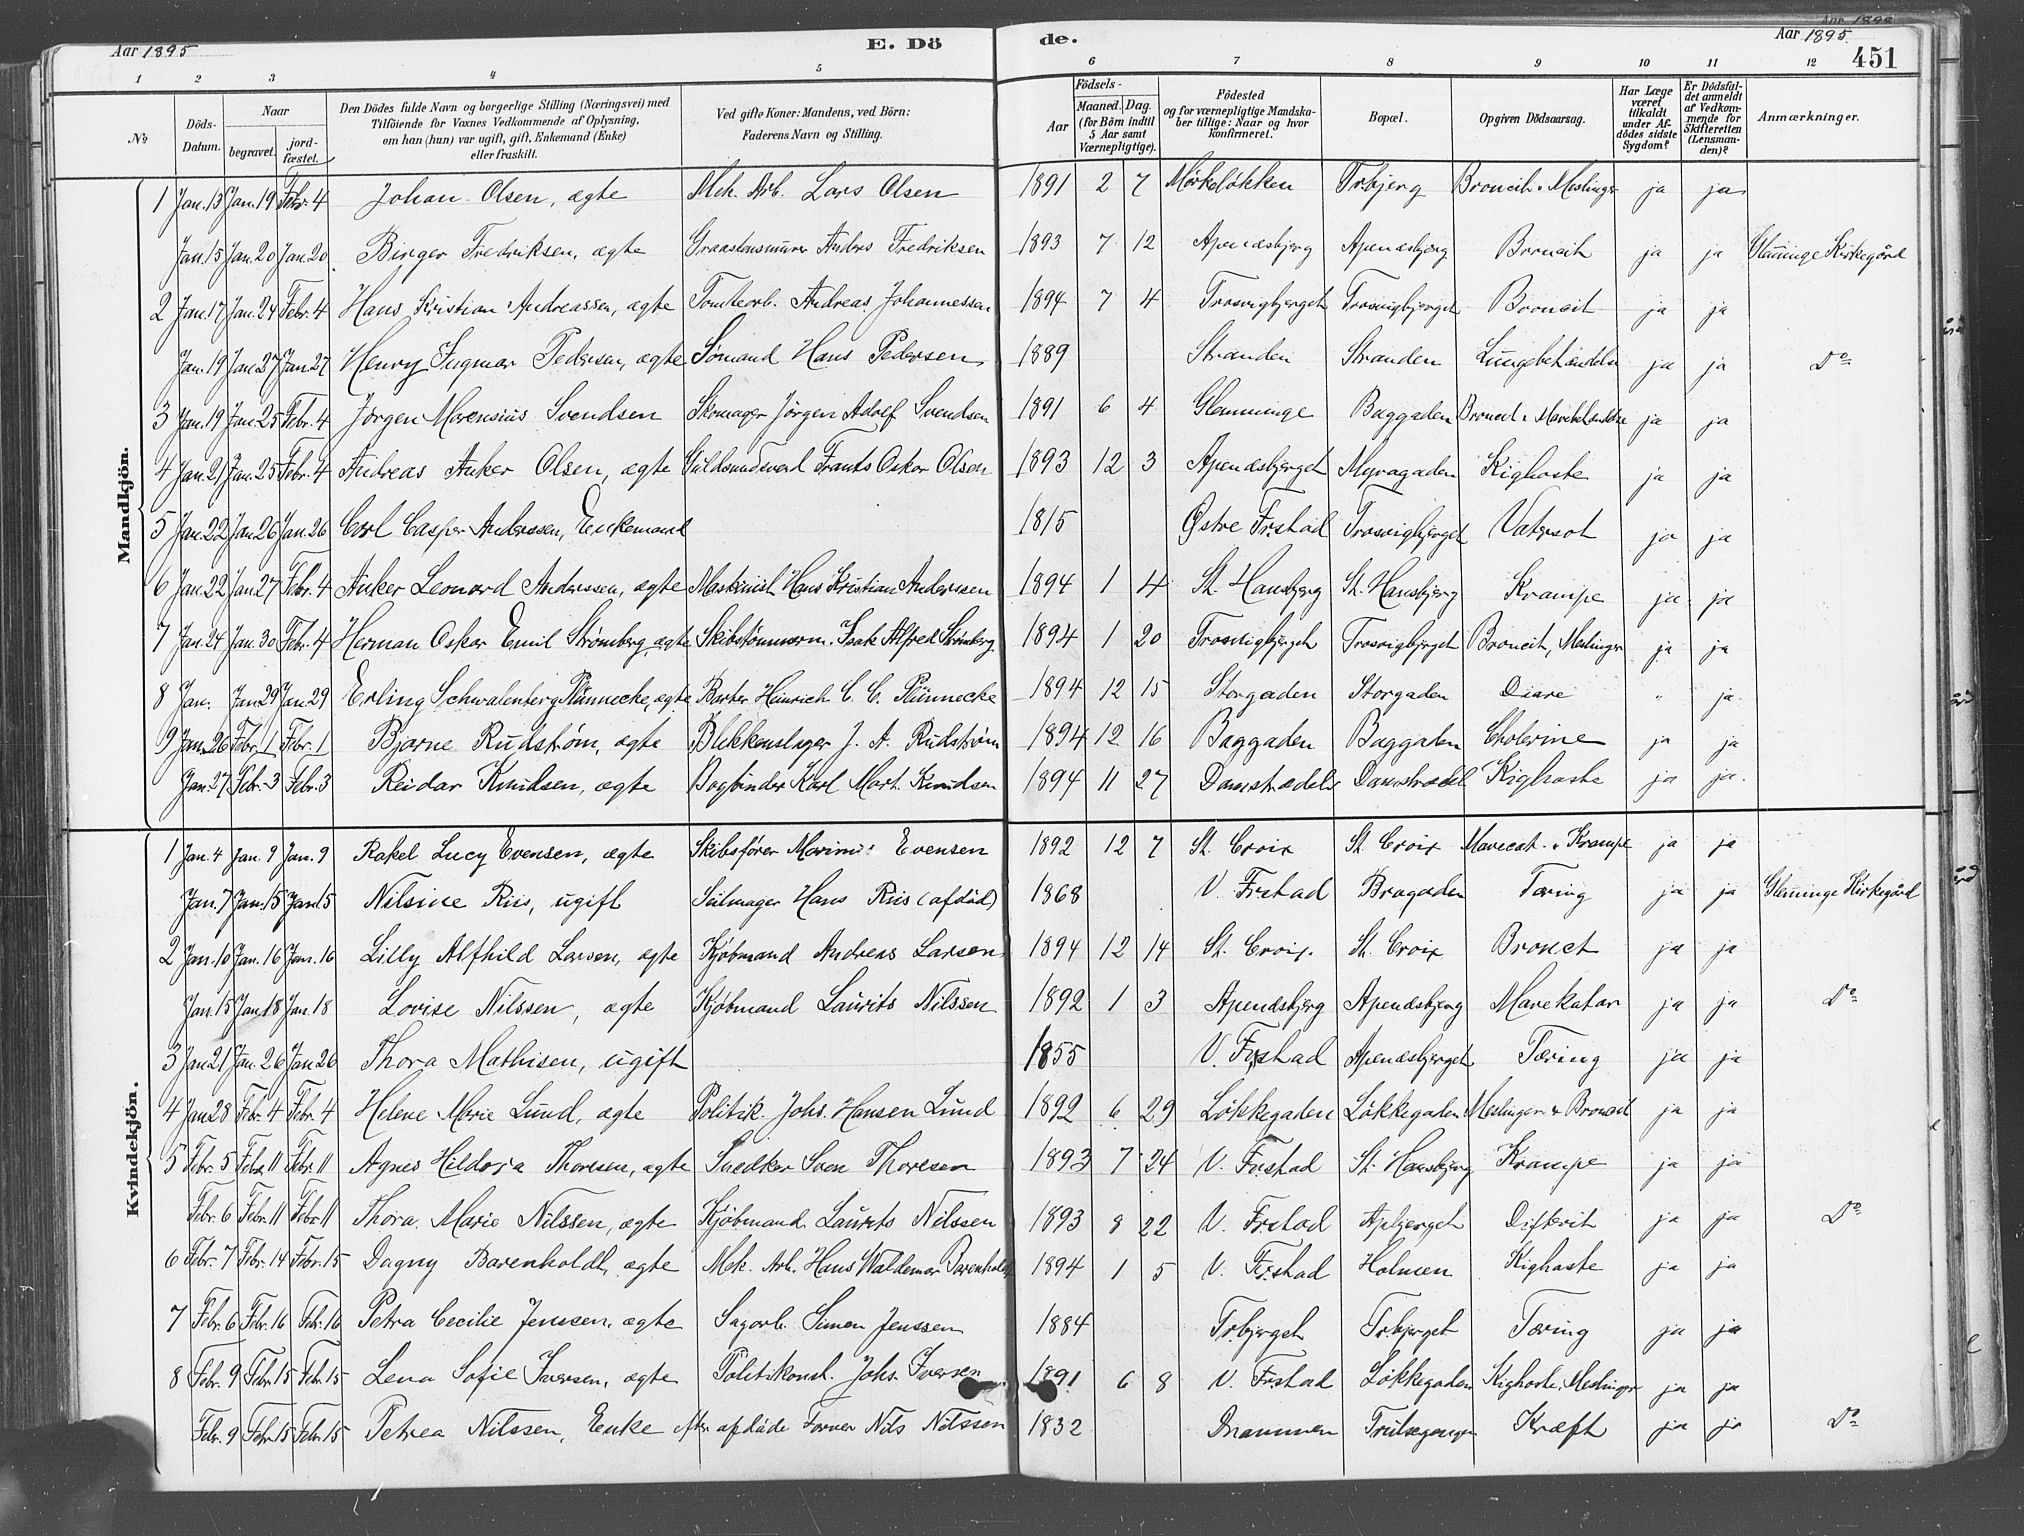 Aar 1895
E. Dö de.
Aar 1898
Aar 1895.
451
1 2 3 4 5 6 7 8 9 10 11 12
No
Döds-Datum.
Naar
begravet.
jord-fæstet.
Den Dödes fulde Navn og borgerlige Stilling (Næringsvei) med
Tilföiende for Voxnes Vedkommende af Oplysning,
om han (hun) var ugift, gift, Enkemand (Enke)
eller fraskilt.
Ved gifte Koner: Mandens, ved Börn:
Faderens Navn og Stilling.
Födsels-
Aar
Maaned. Dag.
(for Börn indtil
5 Aar samt
Værnepligtige).
Födested
og for værnepligtige Mandska-
ber tillige: Naar og hvor
konfirmeret.
Bopæl.
Opgiven Dödsaarsag.
Har Læge
været
tilkaldt
under Af-
dödes sidste
Sygdom?
Er Dödsfal-
det anmeldt
af Vedkom-
mende for
Skifteretten
(Lensman-
den)?
Anmærkninger.
Mandkjön.
1 Jan. 13 Jan. 19 Febr. 4 Johan Olsen, ægte Mek. Arb. Lars Olsen 1891 2 7 Mørkeløkken Trbjerg Broncit. Meslinger ja ja
Jan. 15 Jan. 20 Jan. 20 Birger Fredriksen, ægte Graastensmurer Anders Fredriksen 1893 7 12 Apenæsbjerg Apenæsbjerg Broncit ja ja Glemminge Kirkegård
2 Jan. 17 Jan. 24 Febr. 4 Hans Kristian Andreassen, ægte Tomtearb. Andreas Johannessen 1894 7 4 Trosvigbjerget Trosvigbjerget Broncit ja ja
Jan. 19 Jan. 27 Jan. 27 Henry Ingmar Pedersen, ægte Sømand Hans Pedersen 1889 Stranden Stranden Lungebetændelse ja ja Do
3 Jan. 19 Jan. 25 Febr. 4 Jørgen Marensius Svendsen Skomager Jörgen Adolf Svendsen 1891 6 4 Glemminge Baggaden Broncit ja ja
4 Jan. 21 Jan. 25 Febr. 4 Andreas Anker Olsen, ægte Guldsmedsvend Frants Oskar Olsen 1893 12 3 Apenæsbjerget Myragaden Kighoste ja ja
5 Jan. 22 Jan. 26 Jan. 26 Carl Casper Anderssen, Enkemand 1815 Østre Frstad Trosvigbjerget Vatersot ja ja
6 Jan. 22 Jan. 27 Febr. 4 Anker Leonard Anderssen, ægte Maskinist Hans Kristian Anderssen 1894 1 4 St. Hansbjerg St. Hansbjerg Krampe ja ja
7 Jan. 24 Jan. 30 Febr. 4 Herman Oskar Emil Strømberg, ægte Skibstømmerm. Isak Alfred Strømberg 1894 1 20 Trosvigbjerget Trosvigbjerget Broncit, Meslinger ja ja
8 Jan. Jan. 29 Jan. 29 Erling Schwalenberg Plünnecke, ægte Heinrich C. C. Plünnecke 1894 12 15 Storgaden Storgaden Diare " ja
9 Jan. 26 Febr. 1 Febr. 1 Bjarne Rudstrøm, ægte Blikkenslager J. A. Rudstrøm 1894 12 16 Baggaden Baggaden Cholerine ja ja
Jan. 27 Febr. 3 Febr. 3 Reidar Knudsen, ægte Bogbinder Karl Mart. Knudsen 1894 11 27 Damstrædet Damstrædet Kighoste ja ja
Kvindekjön.
1 Jan. 4 Jan. 9 Jan. 9 Rakel Lucy Evensen, ægte Skibsfører Marinius Evensen 1892 12 7 St. Croix St. Croix Mavecat. Krampe ja ja
Jan. 7 Jan. 15 Jan. 15 Nilsine Riis, ugift Seilmager Hans Riis (afdöd) 1868 V. Frstad Brogaden Tæring ja ja Glemminge Kirkegård
2 Jan. 10 Jan. 16 Jan. 16 Lilly Alfhild Larsen, ægte Kjøbmand Andreas Larsen 1894 12 14 St. Croix. St. Croix Broncit ja ja
Jan. 15 Jan. 18 Jan. 18 Lovise Nilssen, ægte Kjøbmand Laurits Nilssen 1892 1 3 Apenæsbjerg Apenæsbjerg Mavekatar ja ja Do
3 Jan. 21 Jan. 26 Jan. 26 Thora Mathisen, ugift 1855 V. Frstad Apenæsbjerget Tæring ja ja
4 Jan. 28 Febr. 4 Febr. 4 Helene Marie Lund, ægte Politik. Johs. Hansen Lund 1892 6 29 Løkkegaden Løkkegaden Meslinger & Broncit ja ja
5 Febr. 5 Febr. 11 Febr. 11 Agnes Hildora Thoresen, ægte Snedker Sven Thoresen 1893 7 24 V. Frstad St. Hansbjerg Krampe ja ja
Febr. 6 Febr. 11 Febr. 11 Thora Marie Nilssen, ægte Kjøbmand Laurits Nilssen 1893 8 22 V. Frstad Apbjerget Difterit ja ja Do
6 Febr. 7 Febr. 14 Febr. 15 Dagny Barenholdt, ægte Mek. Arb. Hans Waldemar Barenholdt 1894 1 5 V. Frstad Holmen Kighoste ja ja
7 Febr. 6 Febr. 16 Febr. 16 Petra Cecilie Jenssen, ægte Sagarb. Simen Jenssen 1884 Trbjerget Trbjerget Tæring ja ja
8 Febr. 9 Febr. 15 Febr. 15 Lena Sofie Iversen, ægte Politikonst. Johs. Iversen 1891 6 8 V. Frstad Løkkegaden Kighoste, Meslinger ja ja
Febr. 9 Febr. 15 Febr. 15 Petrea Nilssen, Enke efter afdøde Former Nils Nilssen 1832 Drammen Kræft ja ja Do